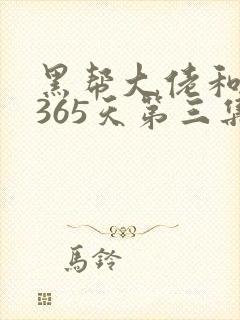 黑帮大佬和
365天第三集
馬鈴